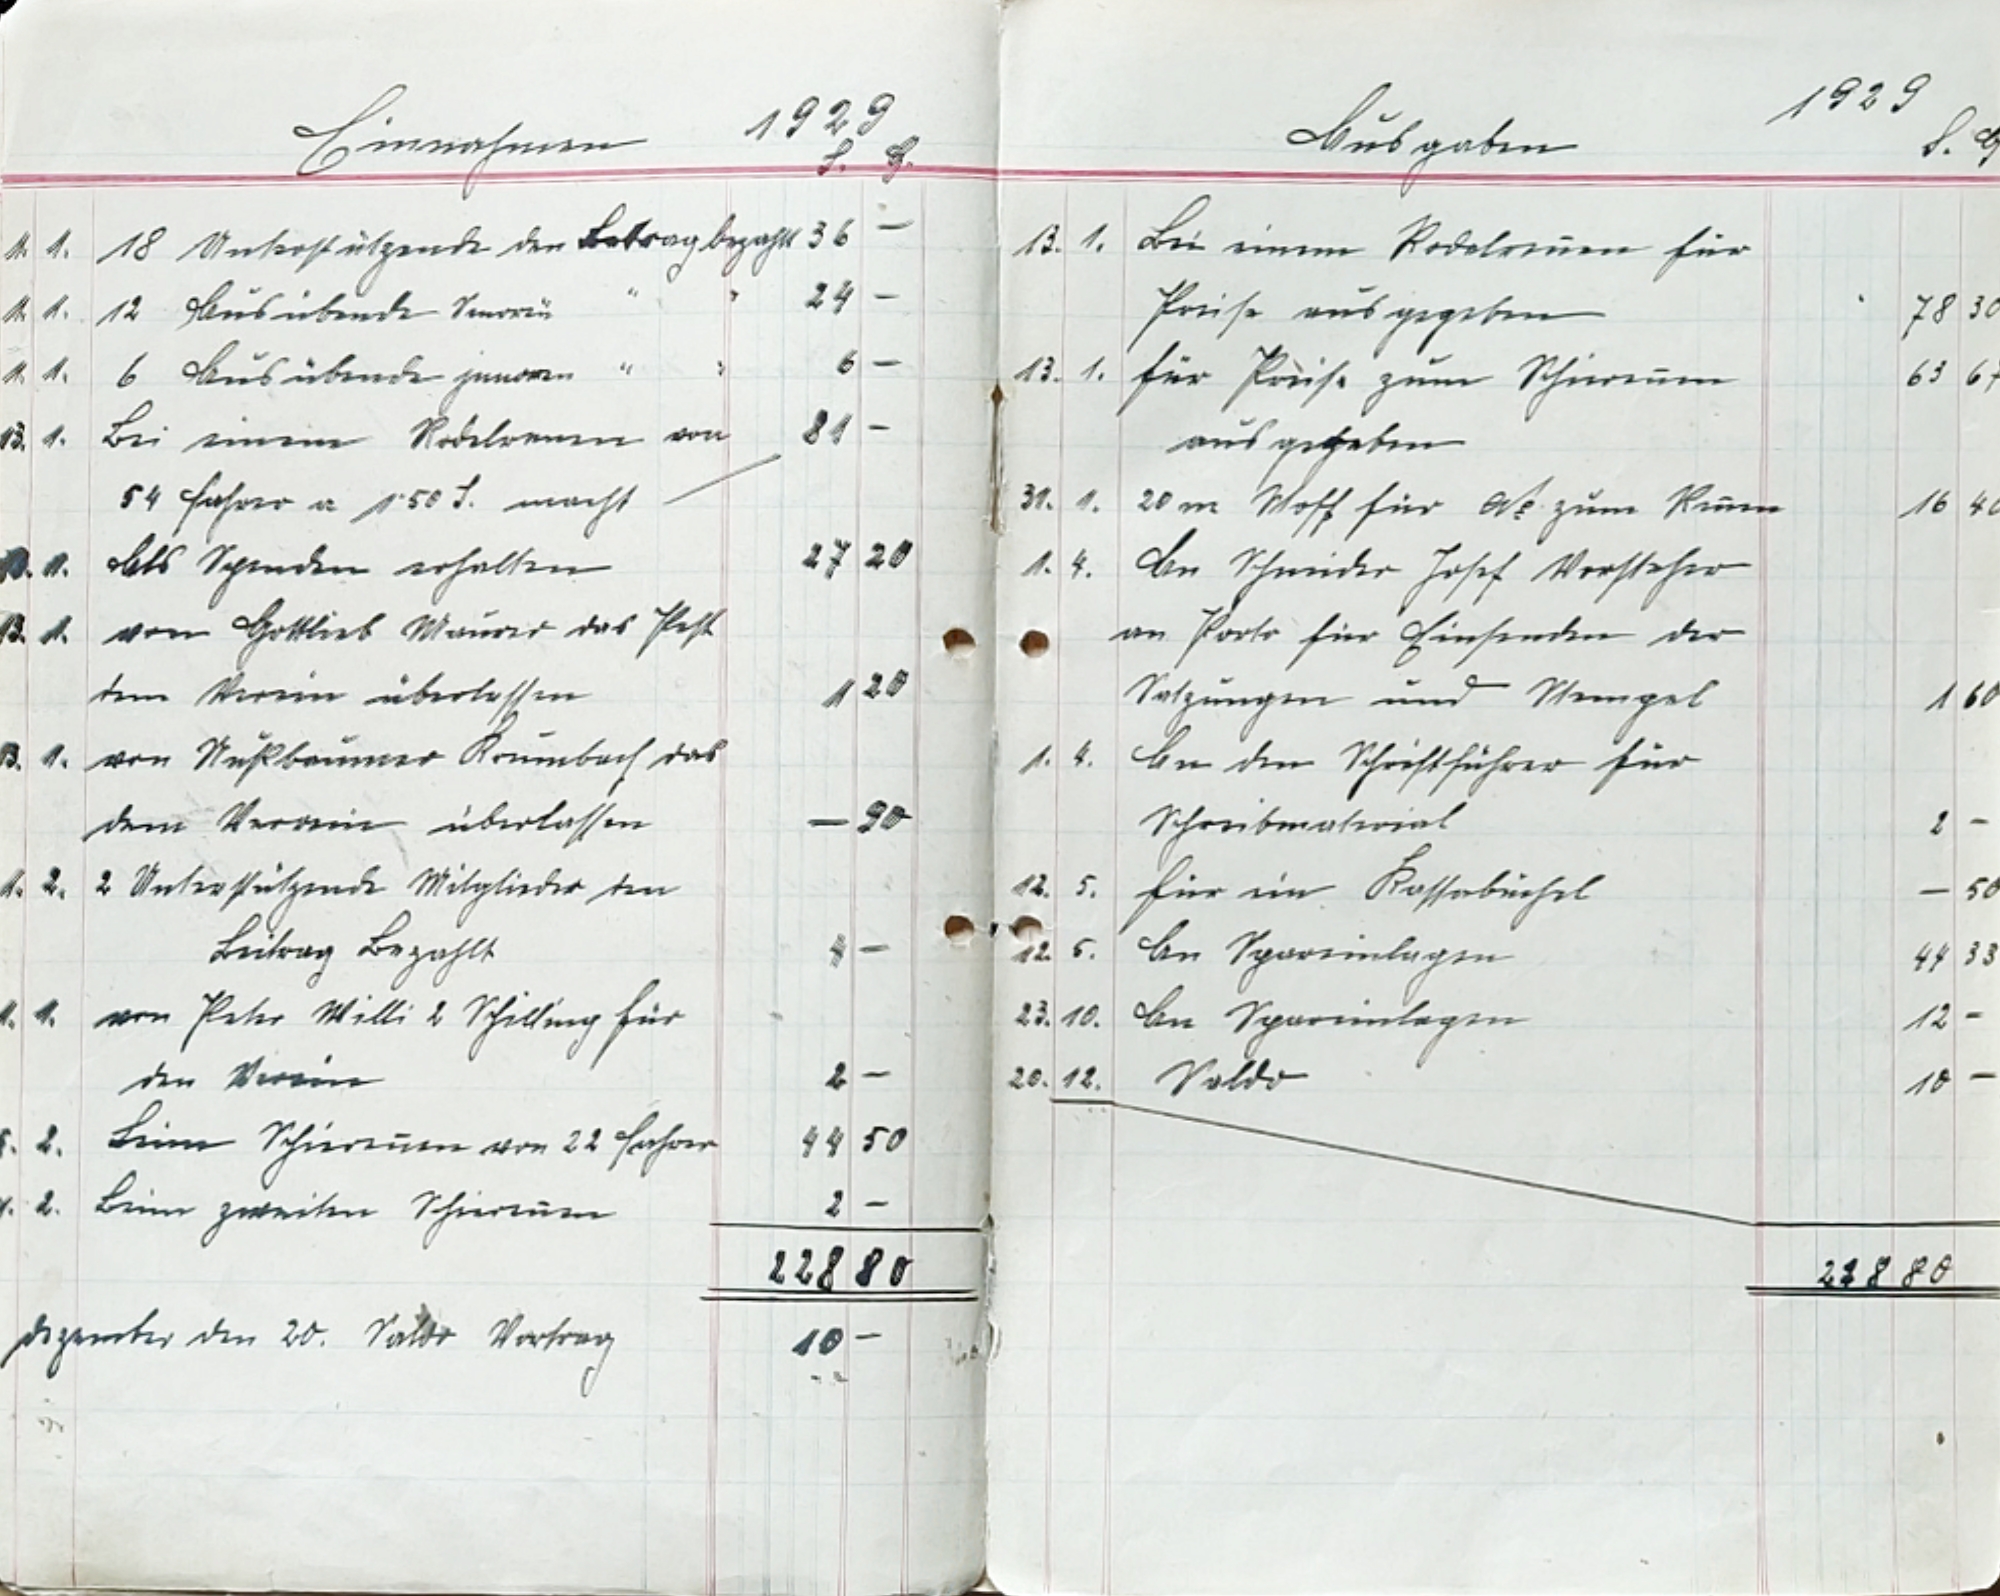 Einnahmen 1929
S. G.
1. 1. 18 Unterstützende den Betrag bezahlt 36 —
1. 1. 12 Ausübende Senoren " " 24 —
1. 1. 6 Ausübende junoren " " 6 —
13. 1. Bei einem Rodelrennen von 81 —
54 Fahrer a 1·50 S. macht
13. 1. Als Spenden erhalten 27 20
13. 1. von Gottlieb Maurer das
dem Verein überlassen 1 20
13. 1. von Nußbaumer Krumbach das
dem Verein überlassen — 90
1. 2. 2 Unterstützende Mitglieder den
Beitrag Bezahlt 4 —
1. 1. von Peter Willi 2 Schilling für
den Verein 2 —
2. Beim Schirennen von 22 Fahrer 44 50
2. Beim zweiten Schirennen 2 —
228 80
Dezember den 20. Saldo Vortrag 10 —
Ausgaben 1929
S. G
13. 1. Bei einem Rodelrennen für
Preise ausgegeben 78 30
13. 1. für Preise zum Schirennen 63 67
ausgegeben
31. 1. 20 m Stoff für zum Rennen 16 40
1. 4. An Schneider Josef Vorsteher
an Porto für Einsenden der
Satzungen und Stempel 1 60
1. 4. An den Schriftführer für
Schreibmaterial 2 —
12. 5. für ein Kassabüchel — 50
12. 5. An Spareinlagen 44 33
23. 10. An Spareinlagen 12 —
20. 12. Saldo 10 —
228 80